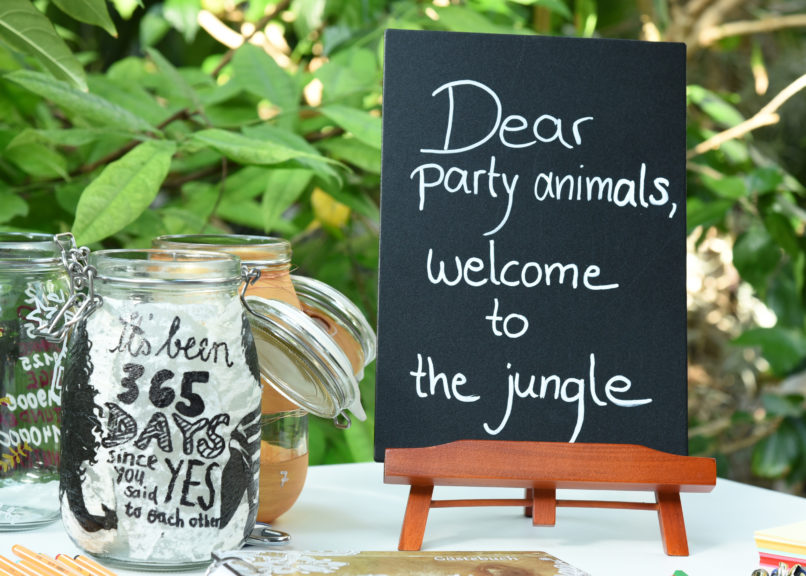 Dear
party animals,
welcome
to
the jungle
It's been
365
DAYS
since
you YES
said
to each other
Gästebuch